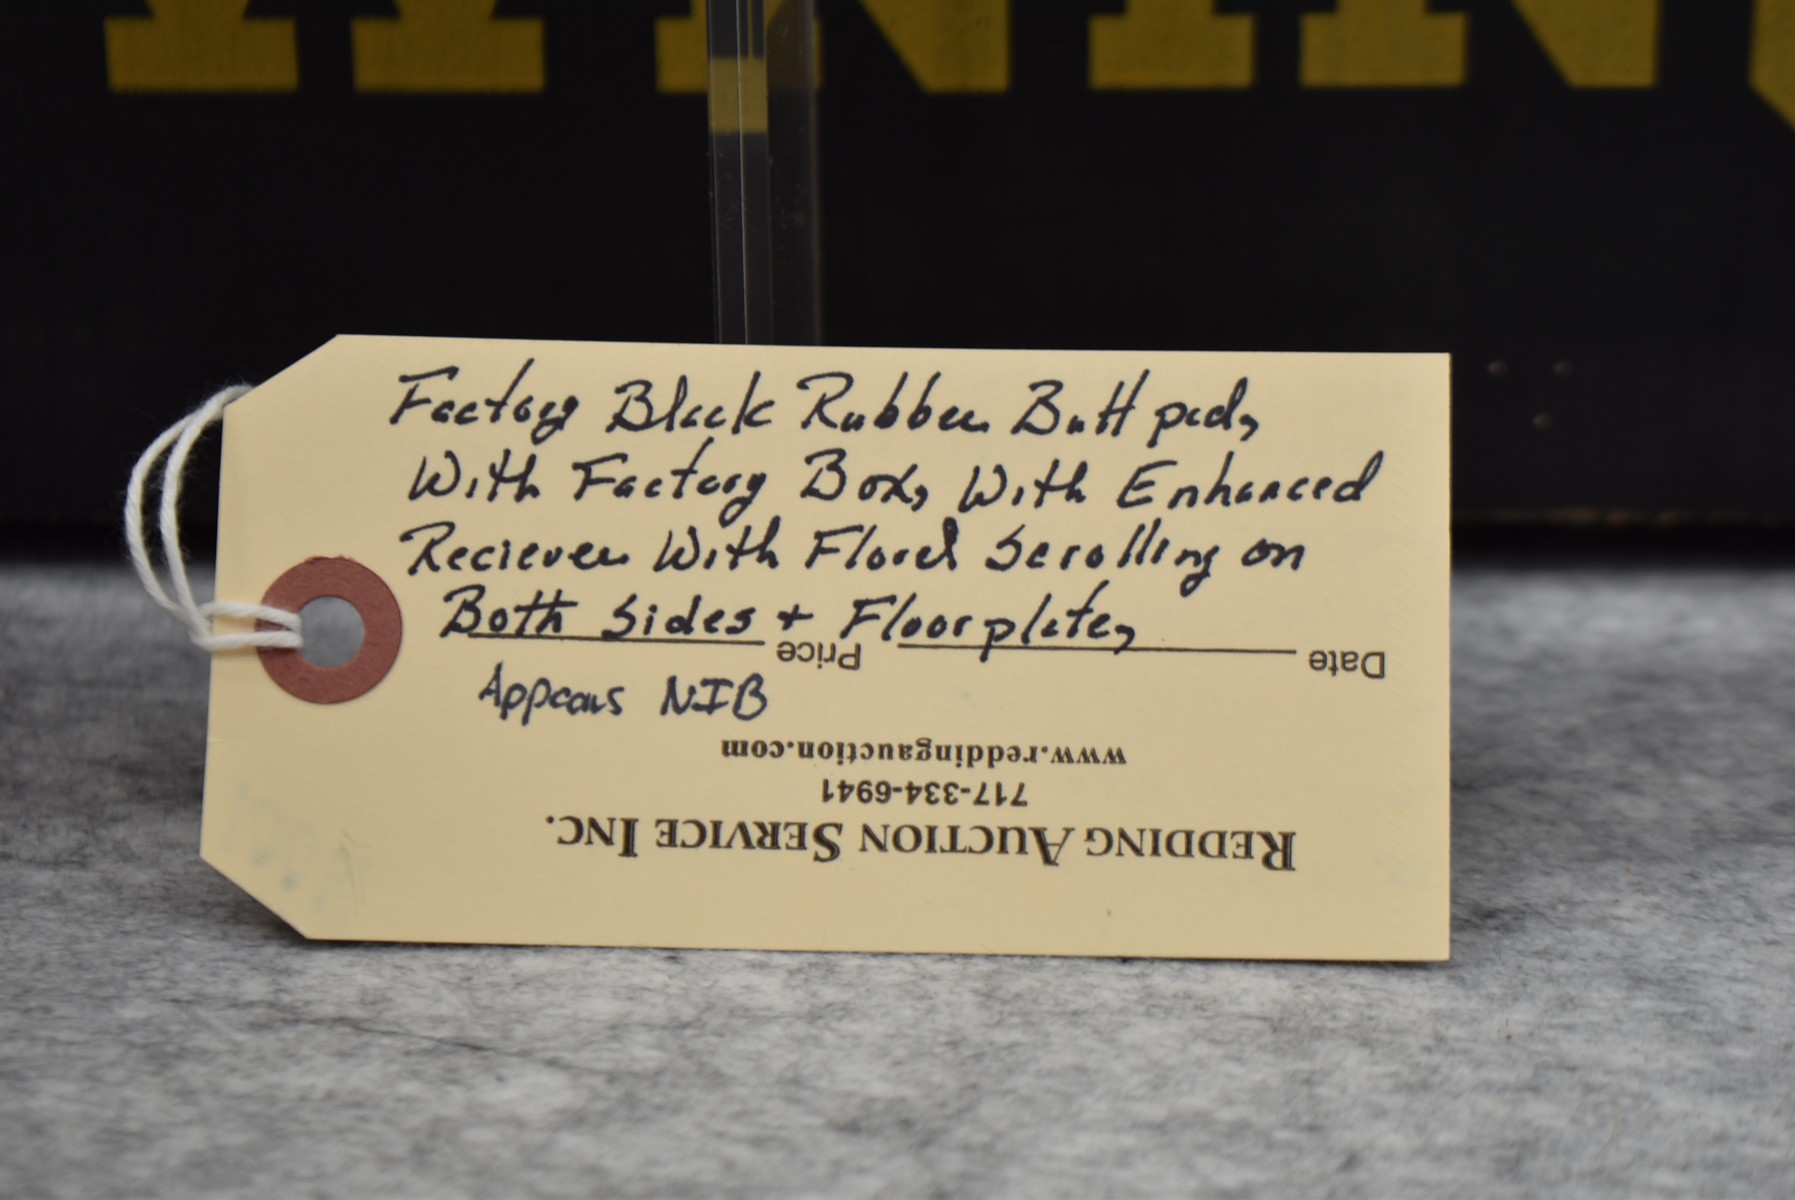 Factory Black Rubber Butt pad,
With Factory Box, With Enhanced
Reciever With Floral Scrolling on
Both Sides + Floorplate,
Price Date
Appears NIB
www.reddingauction.com
717-334-6941
REDDING AUCTION SERVICE INC.